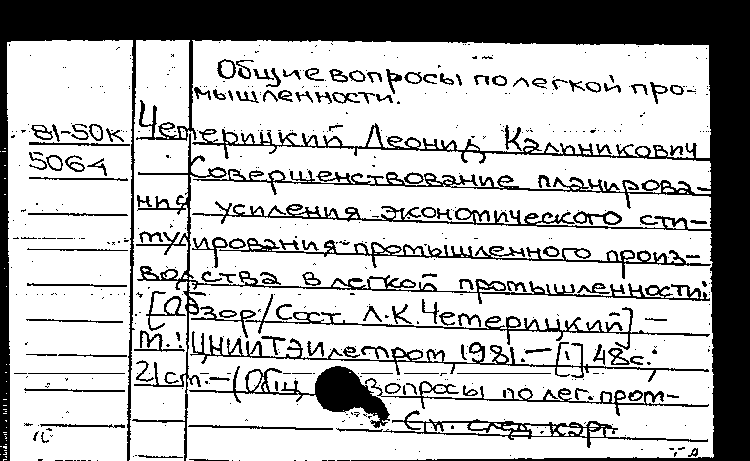 Общие вопросы по легкой про-
мышленности.
81-50к
5064
Четерицкий, Леонид Калиникович
Совершенствование планирова-
ния усиления экономического сти-
мулирования промышленного произ-
водства в легкой промышленности:
[Обзор/Сост. Л.К. Четерицкий].—
М.: ЦНИИТЭИлегпром, 1981.— [1], 48с.;
21см.—(Общ. вопросы по лег. пром-
См. след. карт.